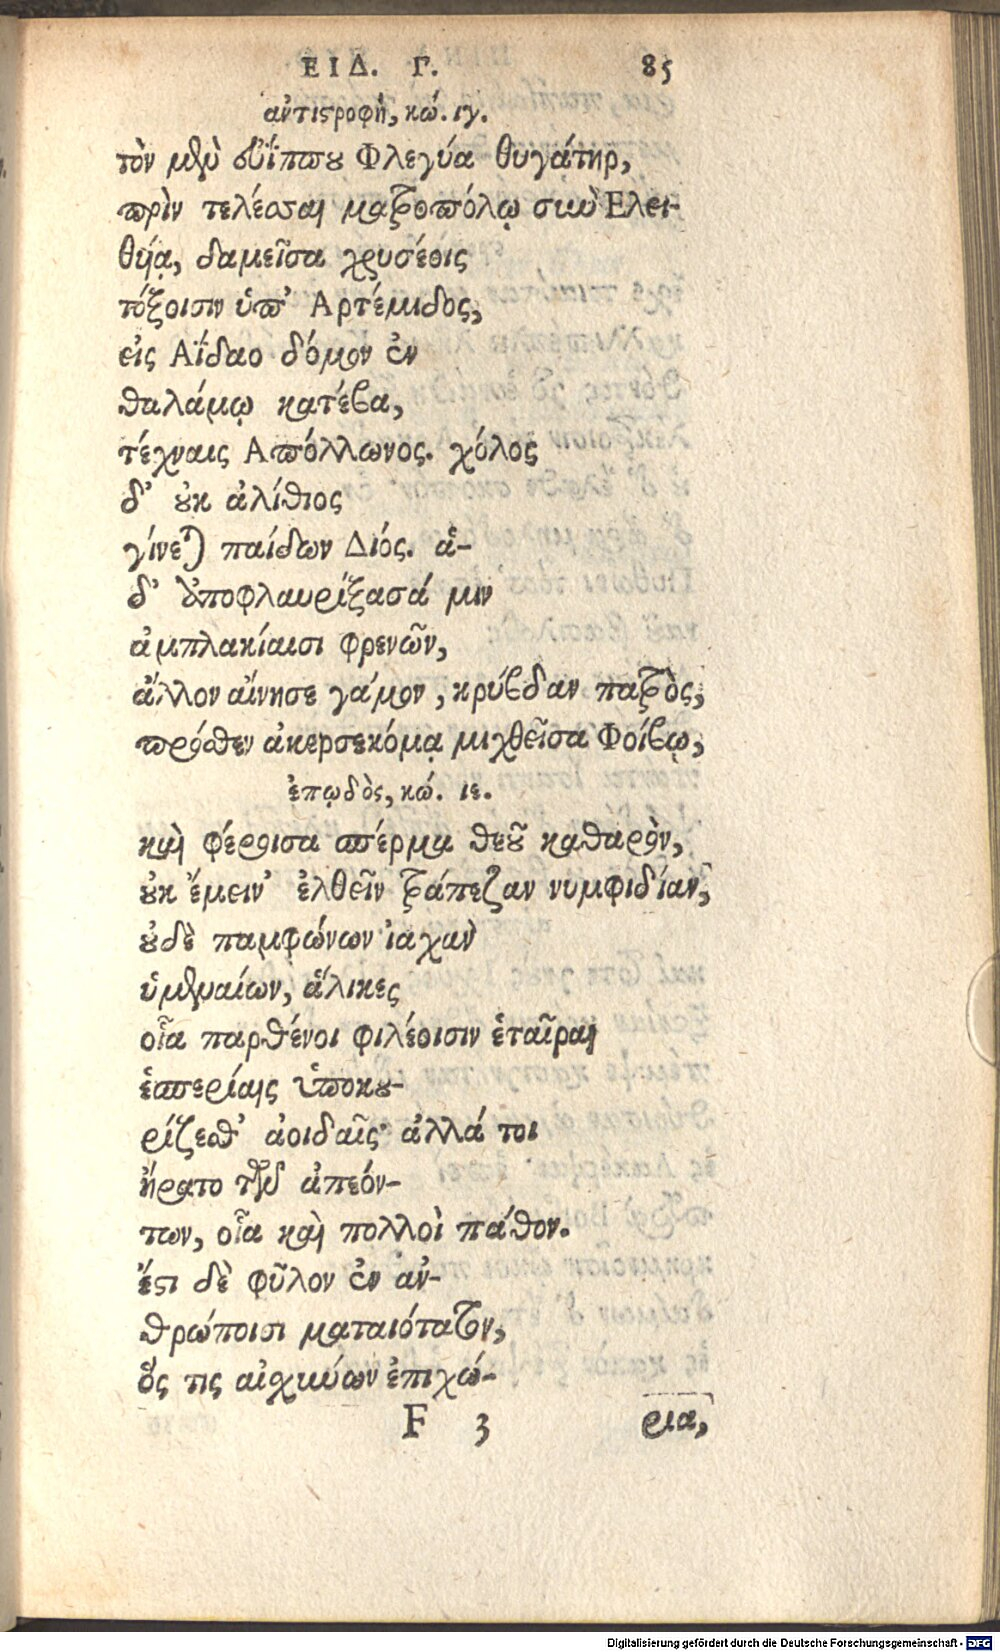 ΕΙΔ. Γ. 85
ἀντιστροφή, κώ. ιγ.
τὸν μὲν εὐΐππου Φλεγύα θυγάτηρ,
πρὶν τελέσσαι ματροπόλῳ σὺν Ελει-
θυίᾳ, δαμεῖσα χρυσέοις
τόξοισιν ὑπ' Αρτέμιδος,
εἰς Αΐδαο δόμον ἐν
θαλάμῳ κατέβα,
τέχναις Απόλλωνος. χόλος
δ' οὐκ ἀλίθιος
γίνεται παίδων Διός. ἁ-
δ' ἀποφλαυρίξασά μιν
ἀμπλακίαισι φρενῶν,
ἄλλον αἴνησε γάμον, κρύβδαν πατρὸς,
πρόσθεν ἀκερσεκόμᾳ μιχθεῖσα Φοίβῳ,
ἐπῳδὸς, κώ. ιε.
καὶ φέροισα σπέρμα θεοῦ καθαρὸν,
οὐκ ἔμειν' ἐλθεῖν τράπεζαν νυμφιδίαν,
οὐδὲ παμφώνων ἰαχὰν
ὑμεναίων, ἅλικες
οἷα παρθένοι φιλέοισιν ἑταῖραι
ἑσπερίαις ὑποκου-
ρίζεσθ' ἀοιδαῖς· ἀλλά τοι
ἤρατο τῶν ἀπεόν-
των, οἷα καὶ πολλοὶ πάθον.
ἔστι δὲ φῦλον ἐν ἀν-
θρώποισι ματαιότατον,
ὅς τις αἰσχύνων ἐπιχώ-
F 3 ρια,
Digitalisierung gefördert durch die Deutsche Forschungsgemeinschaft - DFG